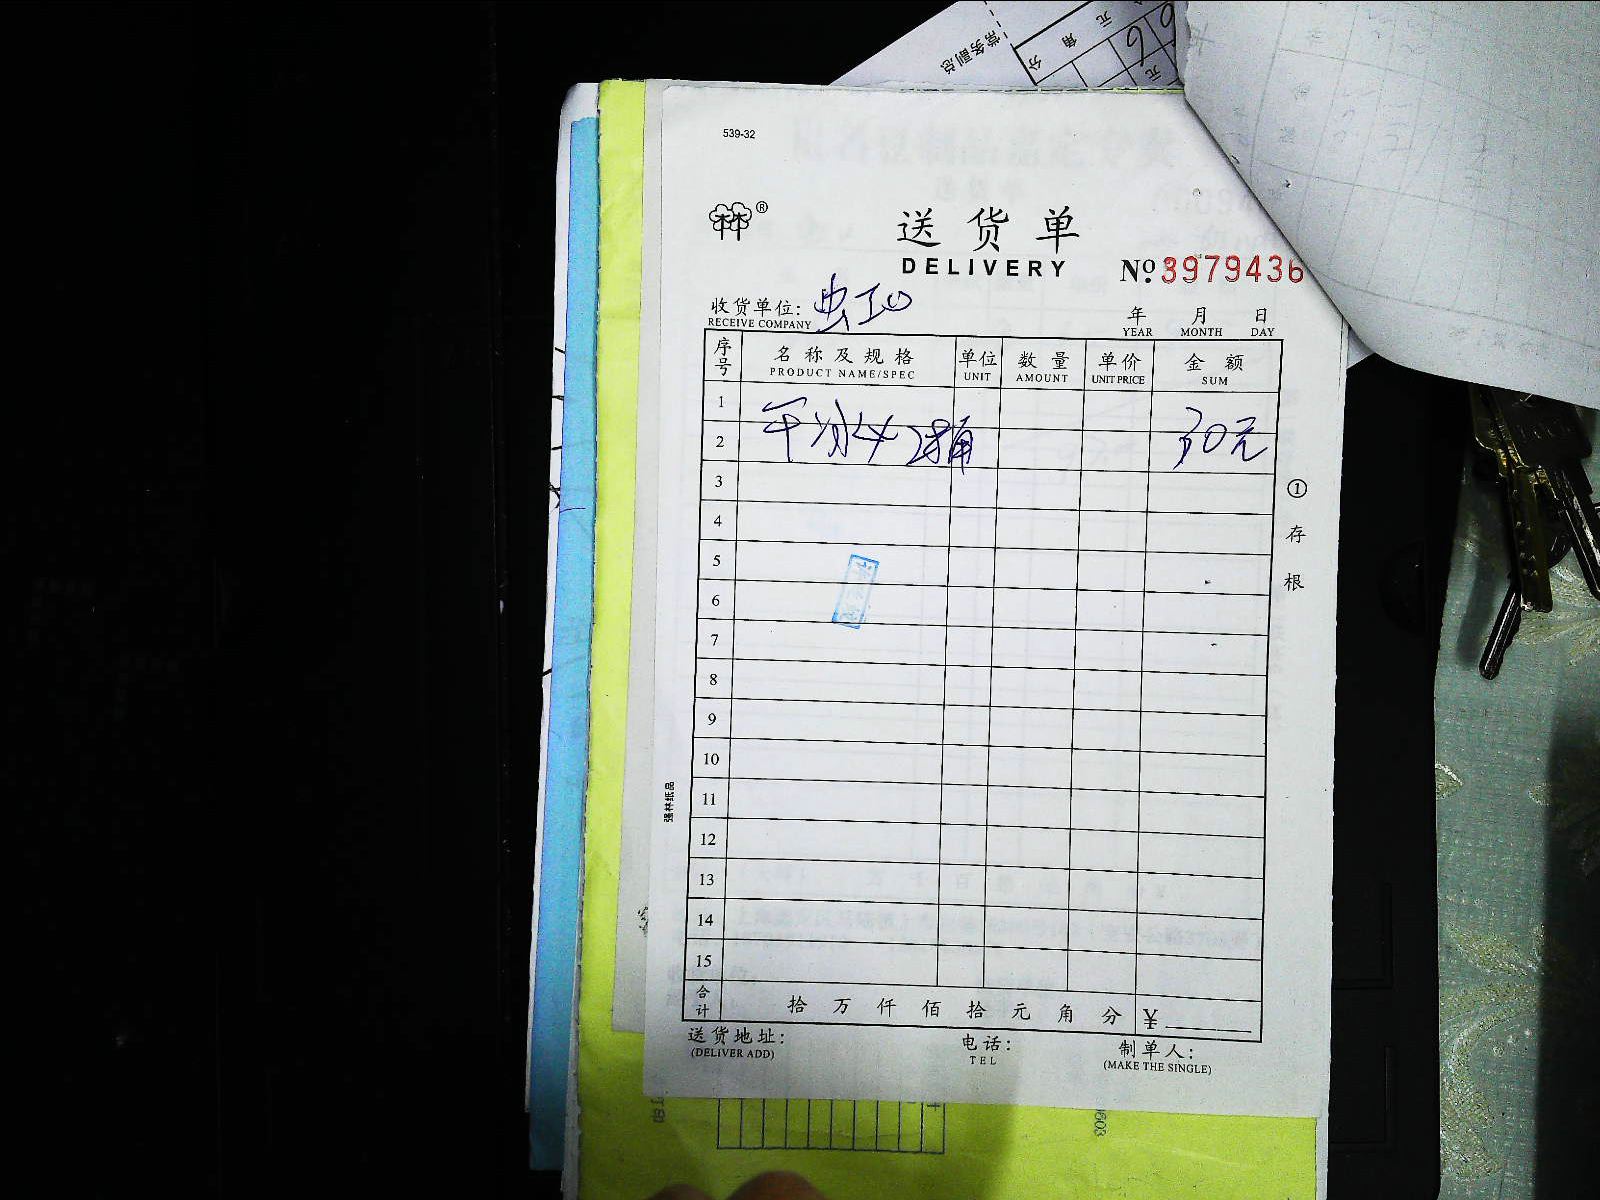 常务副总
分 角 元
元
539-32
林®
送货单
DELIVERY
№ 3979436
收货单位: 虫工心
RECEIVE COMPANY
年 月 日
YEAR MONTH DAY
序号 名称及规格 单位 数量 单价 金额
PRODUCT NAME/SPEC UNIT AMOUNT UNIT PRICE SUM
1
2 30元
3
4
5
6
7
8
9
10
11
12
13
14
15
合计 拾 万 仟 佰 拾 元 角 分 ¥
① 存根
强林纸品
送货地址: 电话: 制单人:
(DELIVER ADD) TEL (MAKE THE SINGLE)